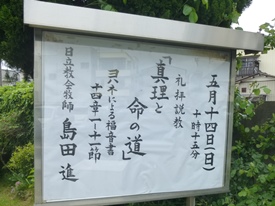 五月十四日(日)
十時十五分
礼拝説教
「真理と
命の道」
ヨハネによる福音書
十四章一ー十一節
日立教会牧師
島田 進